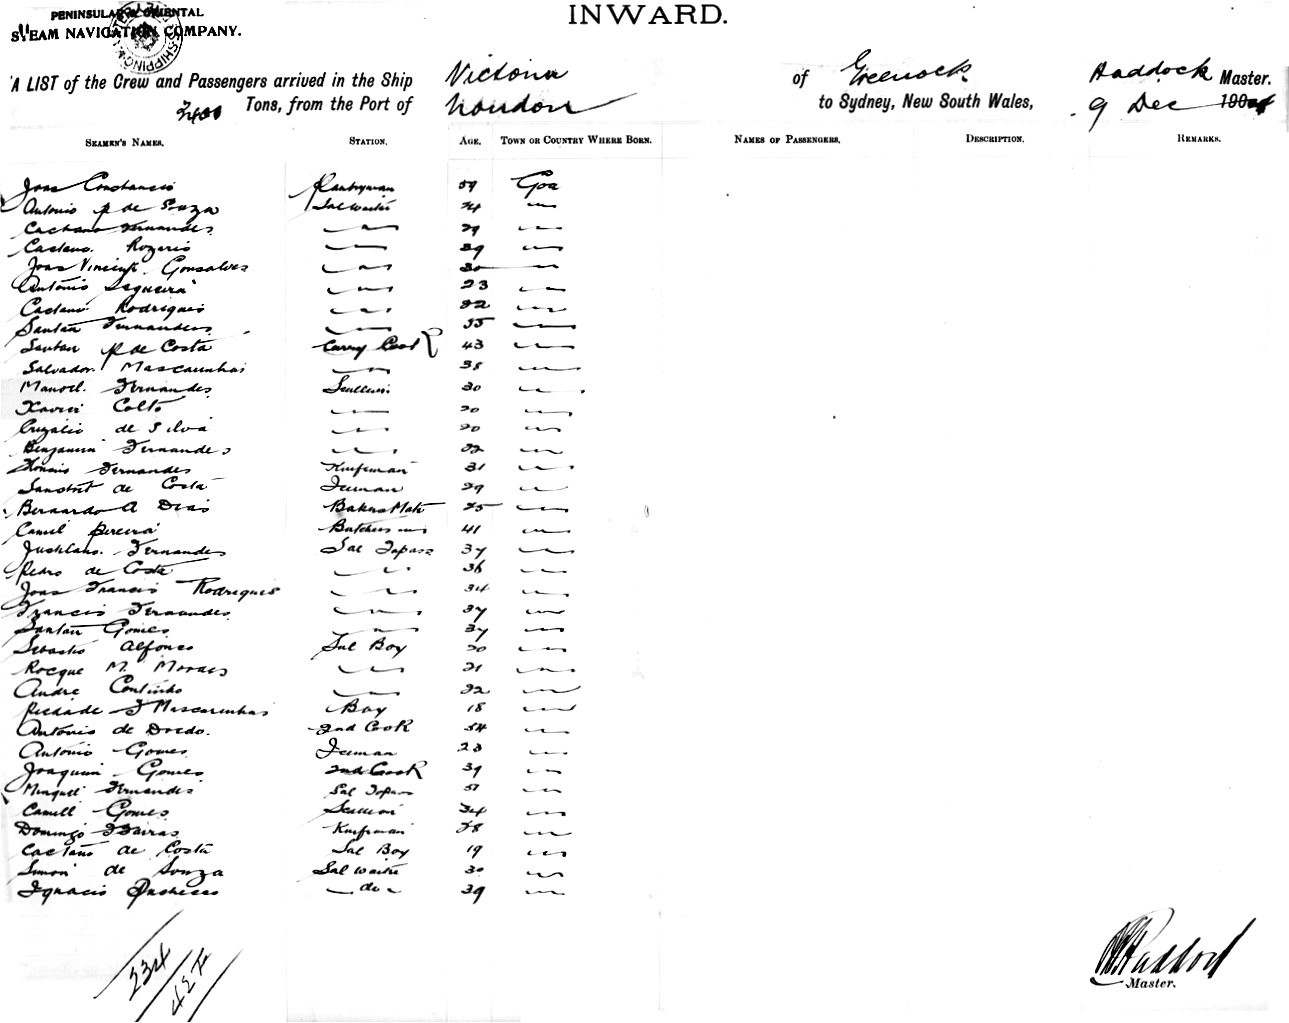 INWARD.
PENINSULAR & ORIENTAL
STEAM NAVIGATION COMPANY.
SHIPPING
A LIST of the Crew and Passengers arrived in the Ship Victoria of Greenock Haddock Master.
2400 Tons, from the Port of London to Sydney, New South Wales, 9 Dec 190
SEAMEN'S NAMES. STATION. AGE. TOWN OR COUNTRY WHERE BORN. NAMES OF PASSENGERS. DESCRIPTION. REMARKS.
Joas Constancio Pantryman 59 Goa
Antonio P de Souza Sal Waiter 24 〃
Caetano Fernandes 〃 29 〃
Caetano Rozario 〃 39 〃
Joas Vincente Gonsalves 〃 30 〃
Antonio Sequeira 〃 23 〃
Caetano Rodrigues 〃 32 〃
Santan Fernandes 〃 55 〃
Santan P de Costa Curry Cook 43 〃
Salvador Mascarenhas 〃 38 〃
Manoel Fernandes Scullion 30 〃
Xavier Colto 〃 20 〃
de Silva 〃 20 〃
Benjamin Fernandes 〃 22 〃
Fernandes Knifeman 31 〃
de Costa Iceman 29 〃
Bernardo A Dias Bakers Mate 25 〃
Camil Pereira Butchers 〃 41 〃
Fernandes Sal Topass 37 〃
Pedro de Costa 〃 36 〃
Joas Francis Rodrigues 〃 34 〃
Francis Fernandes 〃 37 〃
Santan Gomes 〃 37 〃
Sebastio Alfonco Sal Boy 20 〃
Rocque M. Moraes 〃 21 〃
Andre Continho 〃 22 〃
Piedade F Mascarenhas Boy 18 〃
Antonio de 2nd Cook 54 〃
Antonio Gomes Iceman 23 〃
Joaquim Gomes 2nd Cook 39 〃
Minguel Fernandes Sal Topass 51 〃
Camill Gomes Scullion 34 〃
Domingo Knifeman 28 〃
Caetano de Costa Sal Boy 19 〃
Simon de Souza Sal Waiter 30 〃
Ignacio Pacheco — do — 39 〃
234
Haddock
Master.